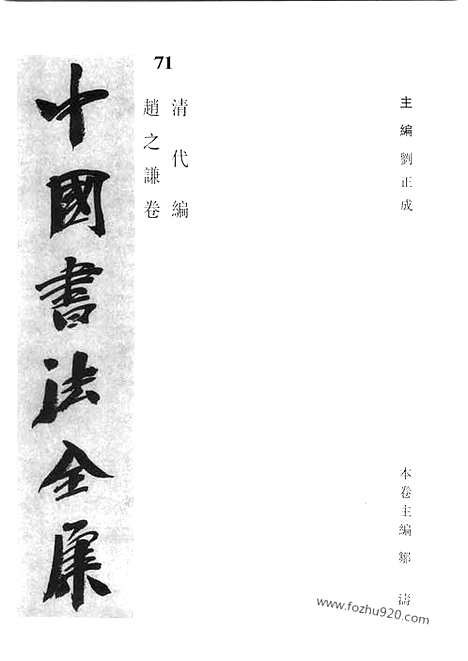 71
主編 劉正成
清代編
趙之謙卷
中國書法全集
本卷主編 鄒濤
www.fozhu920.com